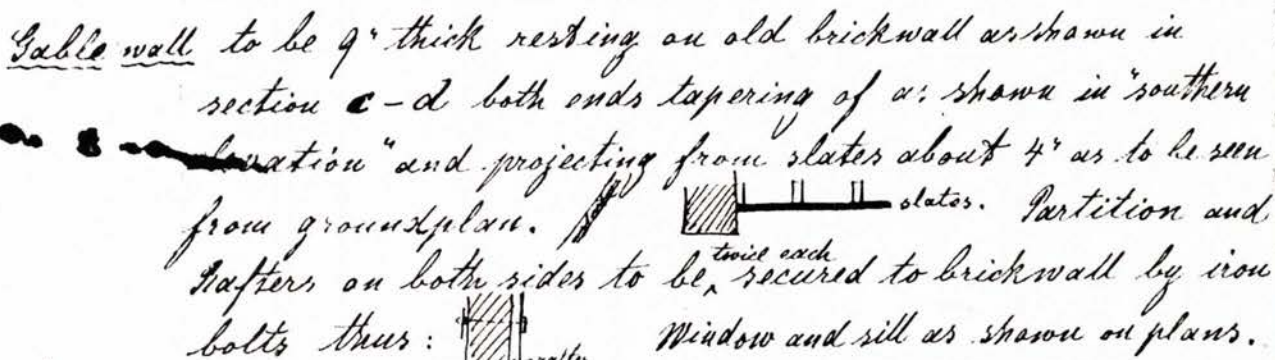 Gable wall to be 9" thick resting on old brickwall as shown in
section c-d both ends tapering of as shown in "southern
elevation" and projecting from slates about 4" as to be seen
from groundplan. slates. Partition and
Rafters on both sides to be twice each secured to brickwall by iron
bolts thus: rafter Window and sill as shown on plans.